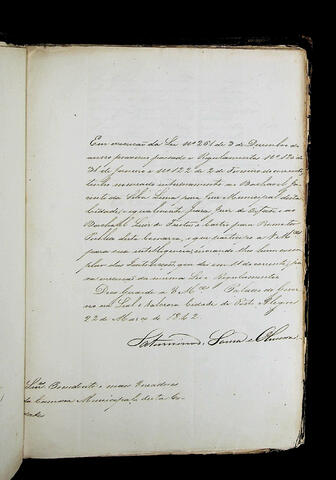 Em execução da Lei Nº 261 de 3 de Dezembro do
anno proximo passado e Regulamentos Nº 120 de
31 de Janeiro e Nº 122 de 2 de Fevereiro do corrente,
tenho nomeado interinamente ao Bacharel
da Silva Lima para Juiz Municipal desta
Cidade, e igualmente para Juiz de Orfãos, e ao
Bacharel Luiz de Freitas e Castro para Promotor
Publico desta Comarca, o que participo a V. Mces
para sua intelligencia,
em de do corrente, pa-
ra execução da mesma Lei e Regulamentos.
Deos Guarde a V. Mces Palacio do Gover-
no na Leal e Valorosa Cidade de Porto Alegre
22 de Março de 1842.
Saturnino de Souza e Oliveira
Snres. Presidente e mais Vereadores
da Camara Municipal desta Ci-
dade